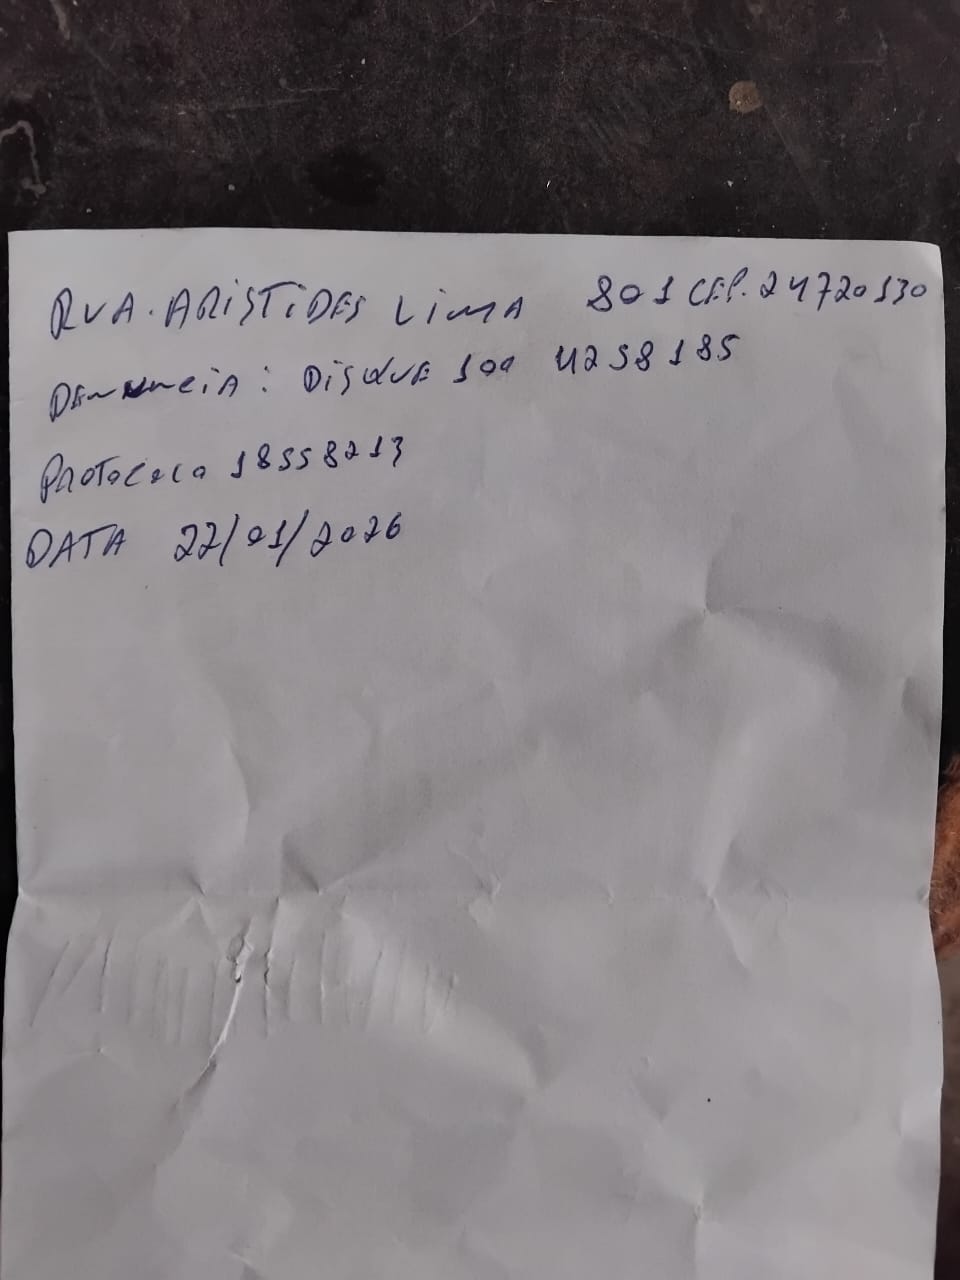 RUA. ARISTIDES LIMA 801 CEP. 24720130
DENUNCIA: DISQUE 100 4258185
PROTOCOLO 18558213
DATA 22/01/2026